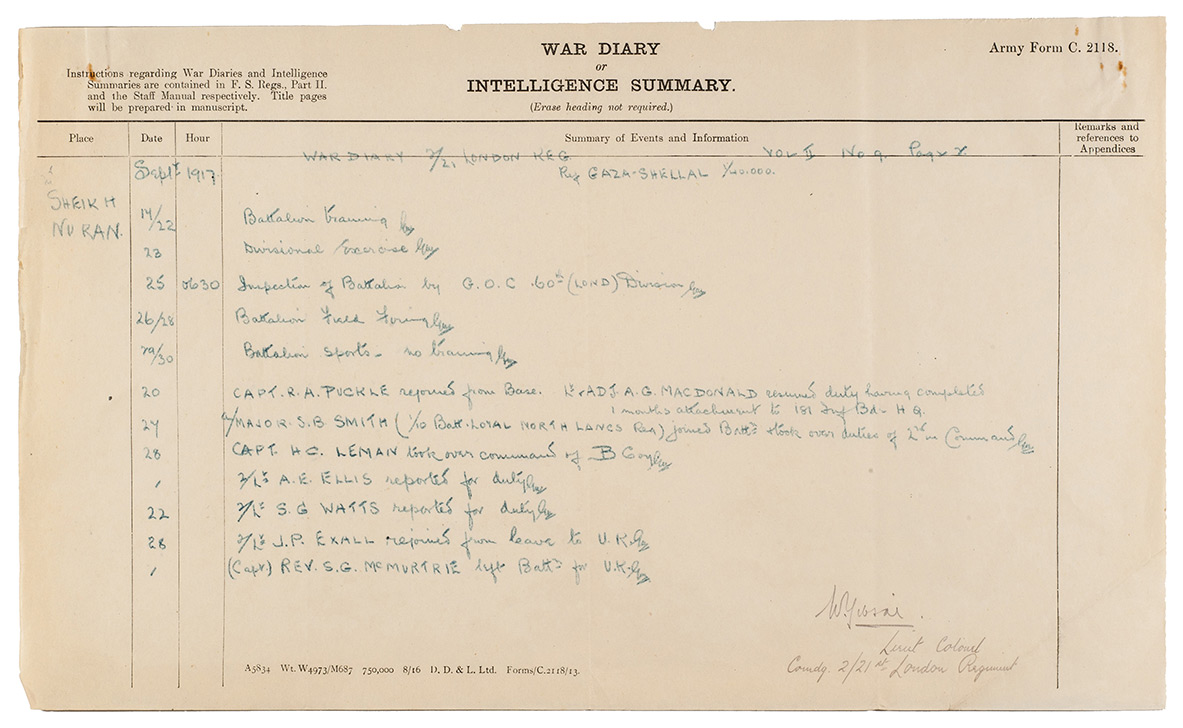 WAR DIARY
or
INTELLIGENCE SUMMARY.
(Erase heading not required.)
Army Form C. 2118.
Instructions regarding War Diaries and Intelligence
Summaries are contained in F. S. Regs., Part II.
and the Staff Manual respectively. Title pages
will be prepared in manuscript.
Place Date Hour Summary of Events and Information Remarks and references to Appendices
WAR DIARY 2/21 LONDON REG. VOL II No 9. Page
Sept 1917 Ref GAZA-SHELLAL 1/40.000.
SHEIKH
NURAN.
14/22 Battalion training
23 Divisional Exercise
25 0630 Inspection of Battalion by G.O.C. 60th (LOND) Division
26/28 Battalion Field Firing
29/30 Battalion sports - no training
20 CAPT. R.A. PUCKLE rejoined from Base. Lt & ADJ. A.G. MACDONALD resumed duty having completed
1 months attachment to 181 Inf Bde H.Q.
27 a/MAJOR S.B. SMITH (1/10 Batt. LOYAL NORTH LANCS Reg) joined Battn & took over duties of 2nd in Command
28 CAPT. H.C. LEMAN took over command of B Coy
2/Lt A.E. ELLIS reported for duty
22 2/Lt S.G WATTS reported for duty
28 2/Lt J.P. EXALL rejoined from leave to U.K.
(Capt.) REV. S.G. McMURTRIE left Battn for U.K.
Lieut Colonel
Comdg. 2/21st London Regiment
A5834 Wt. W4973/M687 750,000 8/16 D. D. & L. Ltd. Forms/C.2118/13.